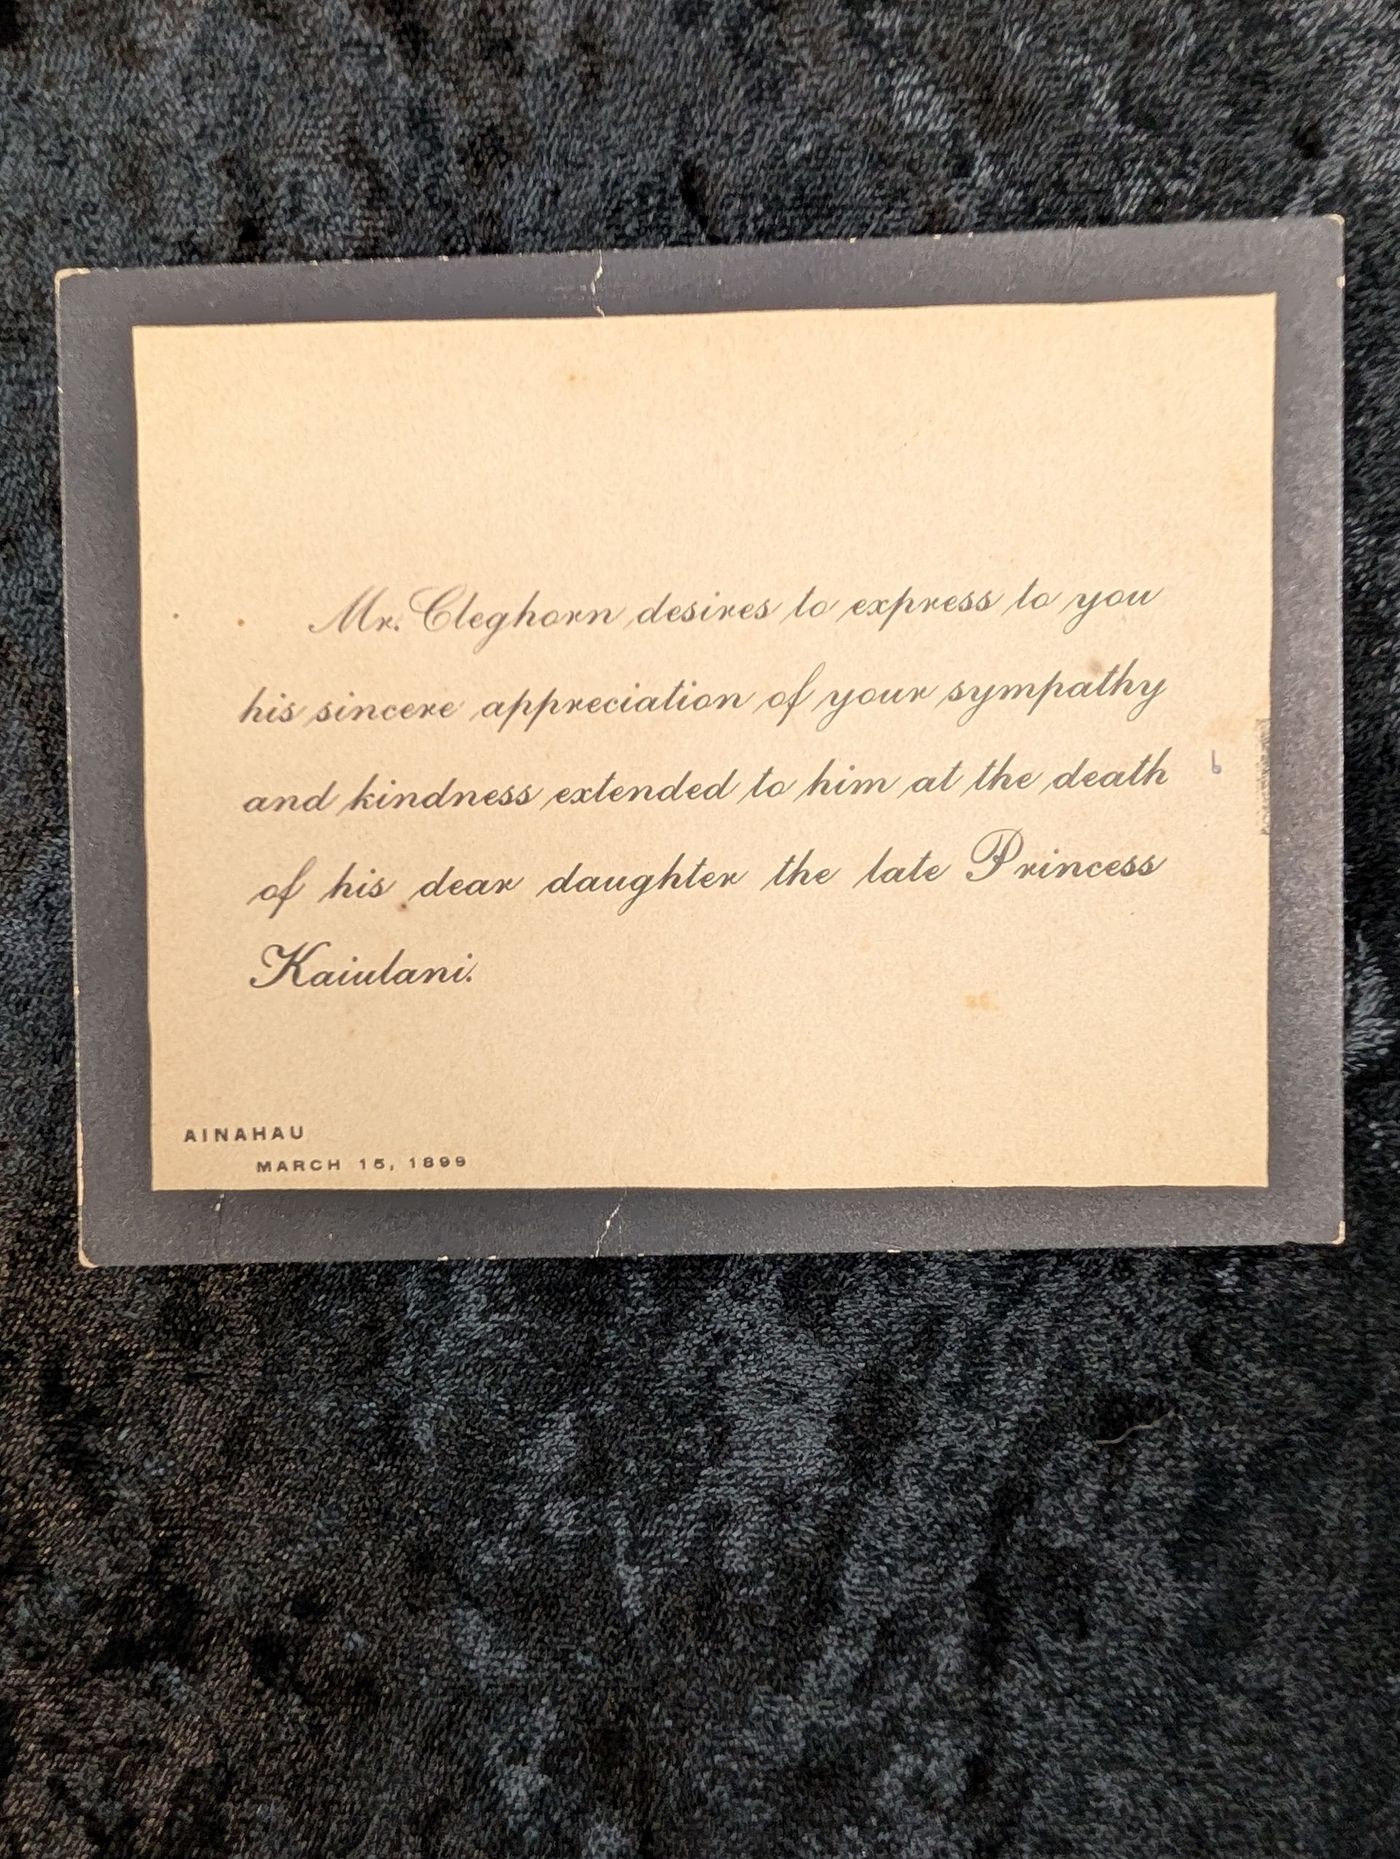 Mr. Cleghorn desires to express to you
his sincere appreciation of your sympathy
and kindness extended to him at the death
of his dear daughter the late Princess
Kaiulani.
AINAHAU
MARCH 15, 1899